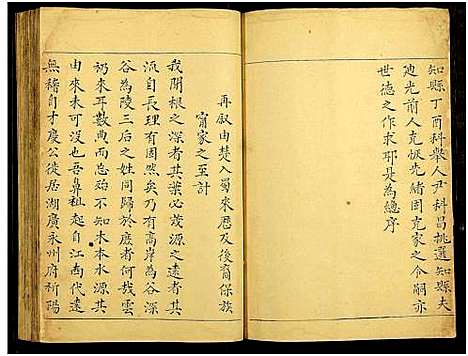 知縣丁酉科舉人尹科昌挑選知縣夫
廸光前人克恢先緒固克家之令嗣亦
世德之作求耶是為總序
再叙由楚入蜀來歷及後裔保族
甯家之至計
我聞根之深者其葉必茂源之遠者其
流自長理有固然矣乃有高岸為谷深
谷為陵三后之姓同歸於庶者何哉雲
礽來耳數典而忘殆不知木本水源其
由來未可沒也吾鼻祖起自江西代遠
無稽自才慶公徙居湖廣永州府祈陽